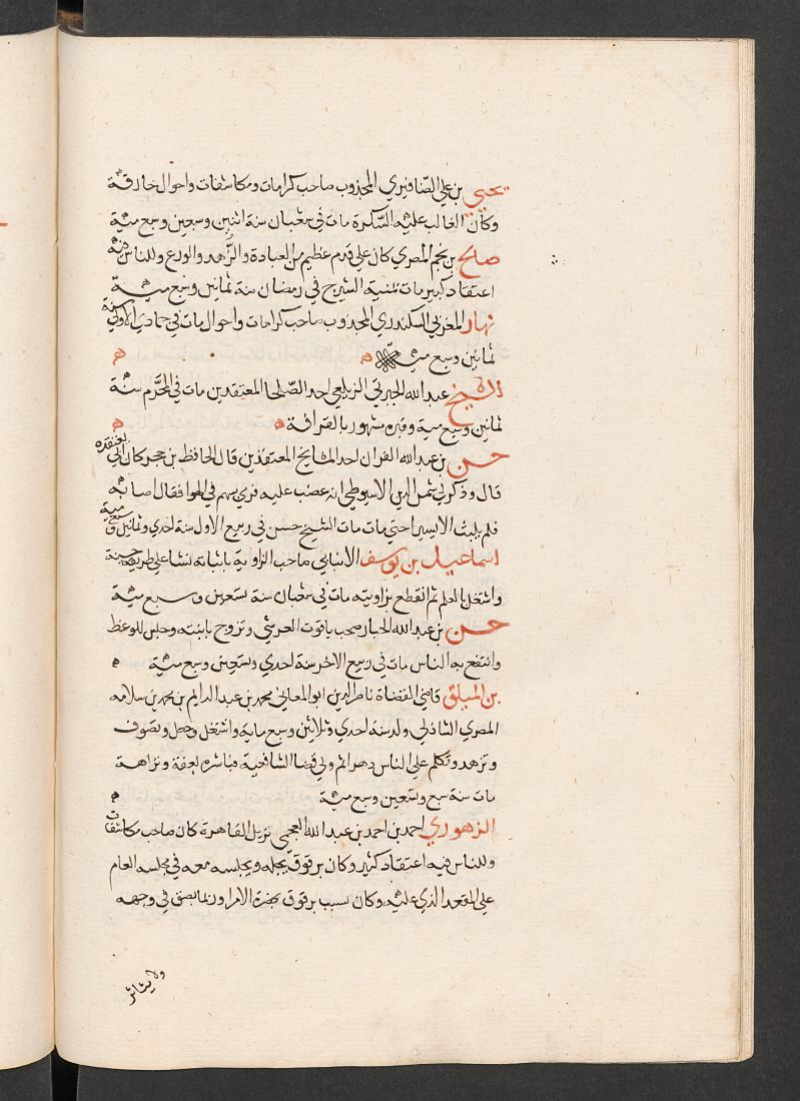 يحيي بن علي الصنافيري المجذوب صاحب كرامات ومكاشفات واحوال خارقة
وكان الغالب عليه السكرة مات في شعبان سنة اثنين وسبعين وسبع مئة
صالح بن نجم المصري كان علي قدم عظيم من العبادة والزهد والورع وللناس فيه
اعتقاد كبير مات بمنية السيرج في رمضان سنة ثمانين وسبع مئة
نهار المغربي السكندري المجذوب صاحب كرامات واحوال مات في جمادي الاولي سنة
ثمانين وسبع مئة ه ه
الشيخ عبد الله الجبرتي الزيلعي احد الصلحا المعتقدين مات في المحرم سنة
ثمانين وسبع مئة وقبره مشهور بالقرافة ه ه
حسن بن عبد الله الفران احد المشايخ المعتقدين قال الحافظ بن حجر كان ابي يعتقده
قال وذكر لي شمس الدين الاسيوطي انه غضب عليه فرمي بسهم في الهوا فقال اصابه
فلم يلبث الا يسيرا حتي مات مات الشيخ حسن في ربيع الاول سنة احدي وثمانين وسبع مية
اسماعيل بن يوسف الانبابي صاحب الزاوية بانبابه نشا علي طريقة حسنة
واشغل بالعلم ثم انقطع بزاويته مات في شعبان سنة تسعين وسبع مئة
حسن بن عبد الله الحبار صحب ياقوت العرشي وتزوج بابنته وجلس للوعظ
وانتفع به الناس مات في ربيع الاخر سنة احدي وتسعين وسبع مئية ه
بن الميلق قاضي القضاة ناصر الدين ابو المعالي محمد بن عبد الدايم بن محمد بن سلامه
المصري الشاذلي ولد سنة احدي وثلاثين وسبع ماية واشتغل وحصل وتصوف
وتزهد وتكلم علي الناس دهرا ثم ولي قضا الشافعية فباشره بعفة ونزاهة
مات سنة سبع وتسعين وسبع مئية ه
الزهوري احمد بن احمد بن عبد الله العجمي نزيل القاهرة كان صاحب مكاشفات
وللناس فيه اعتقاد كثير وكان برقوق يجله ويجلسه معه في مجلسه العام
علي المقعد الذي عليه وكان يسب برقوق بحضرة الامرا وربما بصق في وجهه
ولا يتاثر